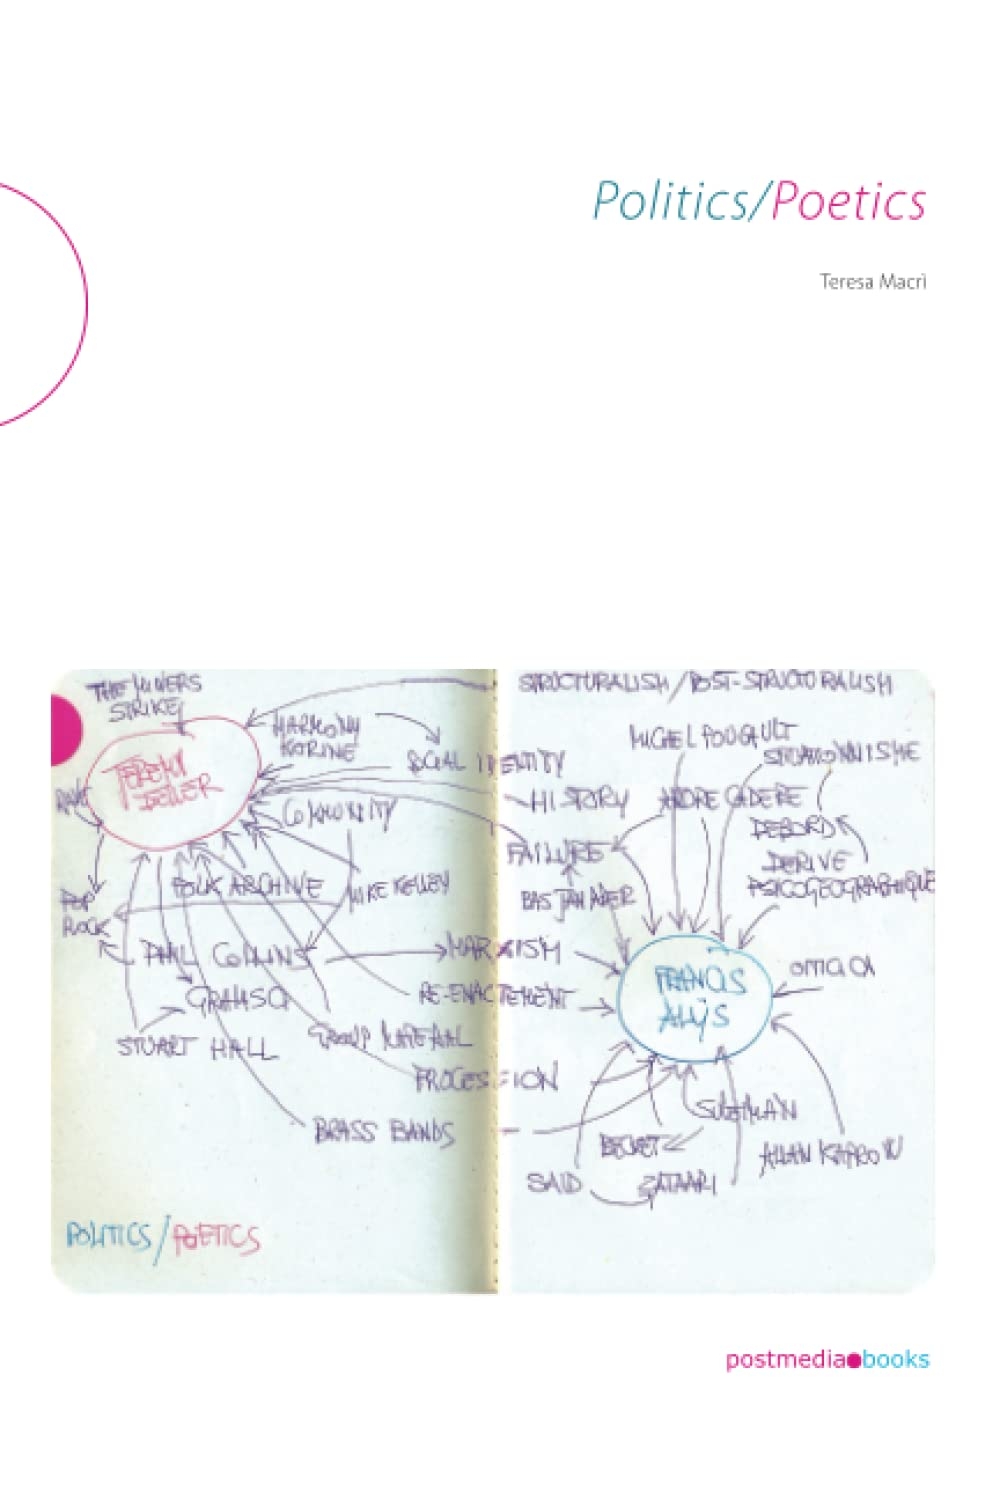 Politics/Poetics
Teresa Macrì
THE MINERS
STRIKE
STRUCTURALISM/POST-STRUCTURALISM
HARMONY
KORINE
MICHEL FOUCAULT
SITUATIONNISME
JEREMY
DELLER
SOCIAL IDENTITY
RAVE
HISTORY
ANDRE CADERE
COMMUNITY
DEBORD
FAILURE
DERIVE
PSICOGEOGRAPHIQUE
FOLK ARCHIVE
MIKE KELLEY
BAS JAN ADER
POP
ROCK
PHIL COLLINS
MARXISM
FRANCIS
ALŸS
OITICICA
GRAMSCI
RE-ENACTEMENT
STUART HALL
GROUP MATERIAL
PROCESSION
SULEIMAN
BRASS BANDS
BECKET
ALLAN KAPROW
SAID
ZATAARI
POLITICS/POETICS
postmedia books